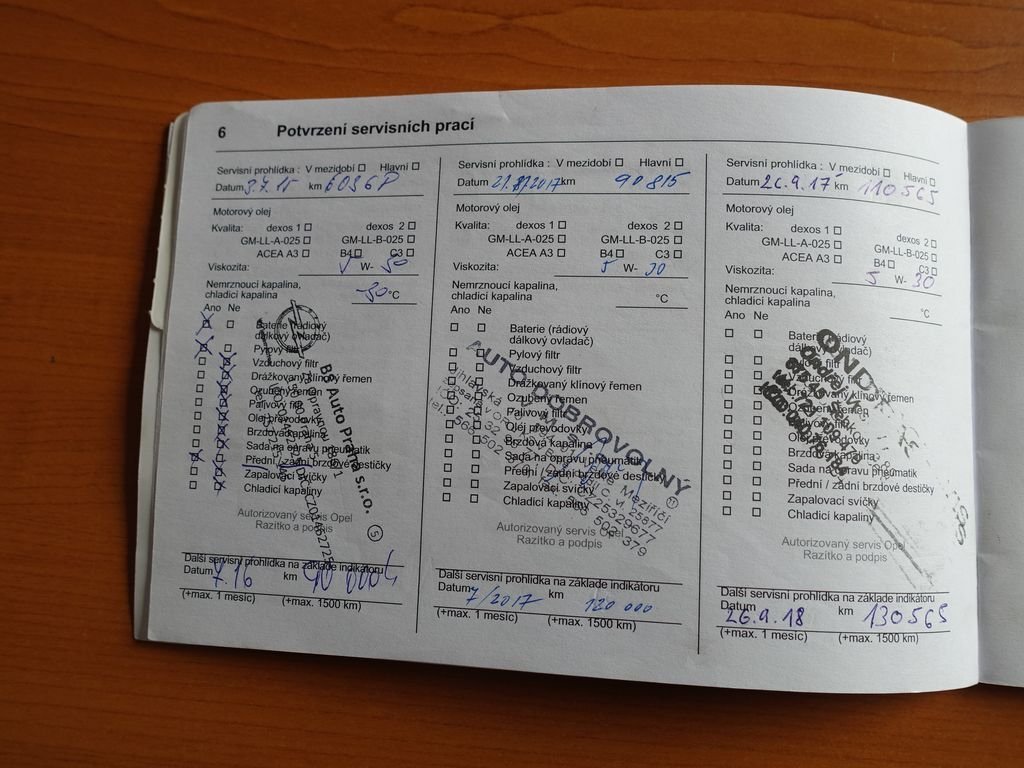 6 Potvrzení servisních prací
Servisní prohlídka : V mezidobí Hlavní
Datum km
Motorový olej
Kvalita: dexos 1 dexos 2
GM-LL-A-025 GM-LL-B-025
ACEA A3 B4 C3
Viskozita: 5 W-
Nemrznoucí kapalina,
chladicí kapalina -30 °C
Ano Ne
Baterie (rádiový
dálkový ovladač)
Pylový filtr
Vzduchový filtr
Drážkovaný klínový řemen
Ozubený řemen
Palivový filtr
Olej převodovky
Brzdová kapalina
Sada na opravu pneumatik
Přední / zadní brzdové destičky
Zapalovací svíčky
Chladicí kapaliny
BS Auto Praha s.r.o.
5
Autorizovaný servis Opel
Razítko a podpis
Další servisní prohlídka na základě indikátoru
Datum 7.16 km
(+max. 1 měsíc) (+max. 1500 km)
Servisní prohlídka : V mezidobí Hlavní
Datum km 90 815
Motorový olej
Kvalita: dexos 1 dexos 2
GM-LL-A-025 GM-LL-B-025
ACEA A3 B4 C3
Viskozita: 5 W- 30
Nemrznoucí kapalina,
chladicí kapalina °C
Ano Ne
Baterie (rádiový
dálkový ovladač)
Pylový filtr
Vzduchový filtr
Drážkovaný klínový řemen
Ozubený řemen
Palivový filtr
Olej převodovky
Brzdová kapalina
Sada na opravu pneumatik
Přední / zadní brzdové destičky
Zapalovací svíčky
Chladicí kapaliny
AUTO DOBROVOLNÝ
Autorizovaný servis Opel
Razítko a podpis
Další servisní prohlídka na základě indikátoru
Datum 7/2017 km 120 000
(+max. 1 měsíc) (+max. 1500 km)
Servisní prohlídka : V mezidobí Hlavní
Datum 26.9.17 km 110 565
Motorový olej
Kvalita: dexos 1 dexos 2
GM-LL-A-025 GM-LL-B-025
ACEA A3 B4 C3
Viskozita: 5 W- 30
Nemrznoucí kapalina,
chladicí kapalina °C
Ano Ne
Baterie (rádiový
dálkový ovladač)
Pylový filtr
Vzduchový filtr
Drážkovaný klínový řemen
Ozubený řemen
Palivový filtr
Olej převodovky
Brzdová kapalina
Sada na opravu pneumatik
Přední / zadní brzdové destičky
Zapalovací svíčky
Chladicí kapaliny
Autorizovaný servis Opel
Razítko a podpis
Další servisní prohlídka na základě indikátoru
Datum 26.9.18 km 130565
(+max. 1 měsíc) (+max. 1500 km)